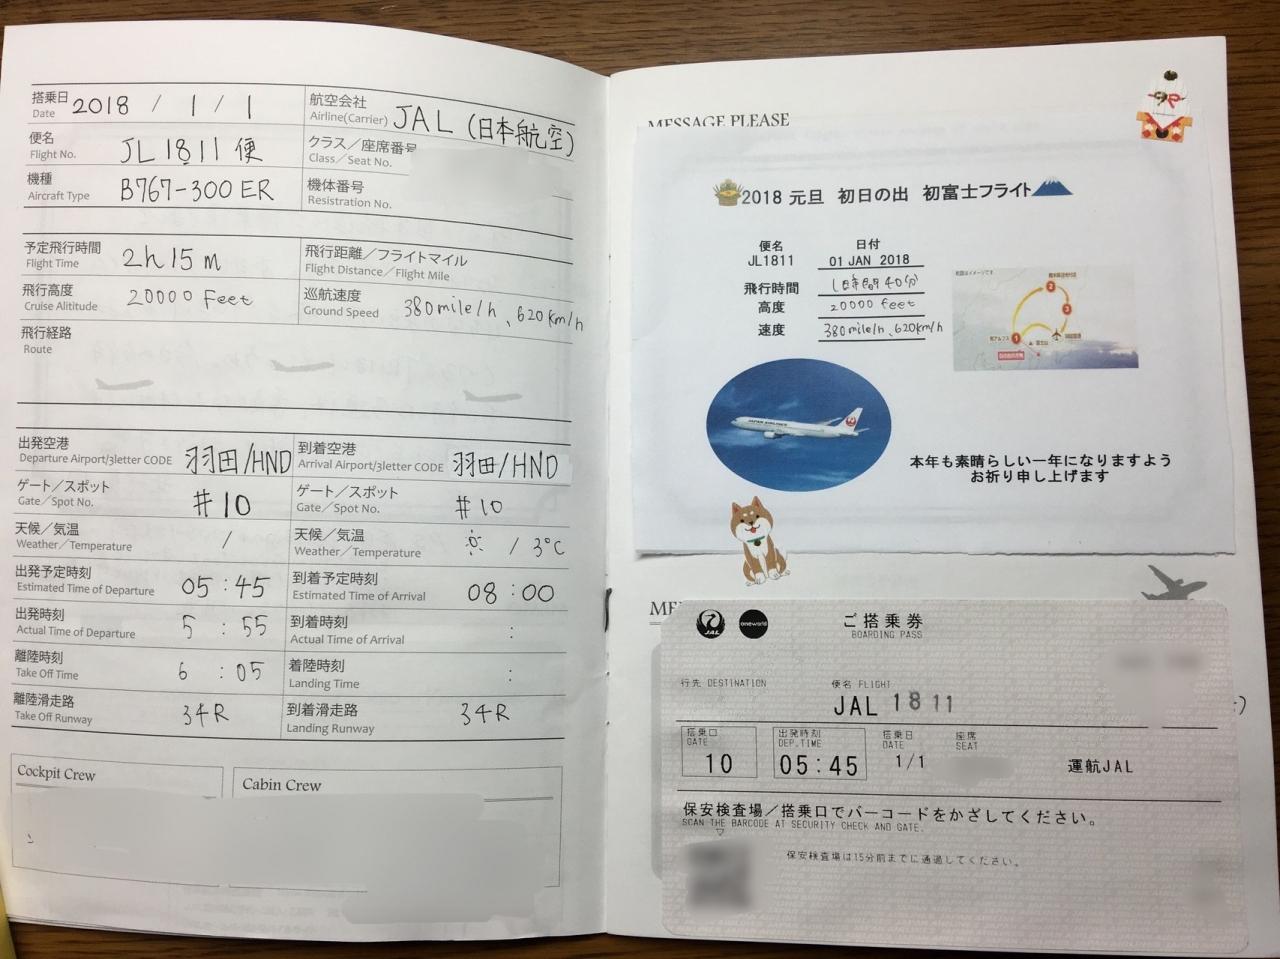 搭乗日
Date
2018 / 1 / 1
航空会社
Airline(Carrier)
JAL (日本航空)
便名
Flight No.
JL1811便
クラス／座席番号
Class／Seat No.
機種
Aircraft Type
B767-300ER
機体番号
Resistration No.
予定飛行時間
Flight Time
2h15m
飛行距離／フライトマイル
Flight Distance／Flight Mile
飛行高度
Cruise Alititude
20000 Feet
巡航速度
Ground Speed
380mile/h、620km/h
飛行経路
Route
出発空港
Departure Airport/3letter CODE
羽田/HND
到着空港
Arrival Airport/3letter CODE
羽田/HND
ゲート／スポット
Gate／Spot No.
#10
ゲート／スポット
Gate／Spot No.
#10
天候／気温
Weather／Temperature
/
天候／気温
Weather／Temperature
/ 3℃
出発予定時刻
Estimated Time of Departure
05:45
到着予定時刻
Estimated Time of Arrival
08:00
出発時刻
Actual Time of Departure
5:55
到着時刻
Actual Time of Arrival
:
離陸時刻
Take Off Time
6:05
着陸時刻
Landing Time
:
離陸滑走路
Take Off Runway
34R
到着滑走路
Landing Runway
34R
Cockpit Crew
Cabin Crew
MESSAGE PLEASE
2018 元旦 初日の出 初富士フライト
便名
JL1811
日付
01 JAN 2018
飛行時間
1時間40分
高度
20000feet
速度
380mile/h、620km/h
JAPAN AIRLINES
本年も素晴らしい一年になりますよう
お祈り申し上げます
ME
JAL
oneworld
ご搭乗券
BOARDING PASS
行先 DESTINATION
便名 FLIGHT
JAL 1811
搭乗口
GATE
10
出発時刻
DEP.TIME
05:45
搭乗日
DATE
1/1
座席
SEAT
運航JAL
保安検査場／搭乗口でバーコードをかざしてください。
SCAN THE BARCODE AT SECURITY CHECK AND GATE.
保安検査場は15分前までに通過してください。